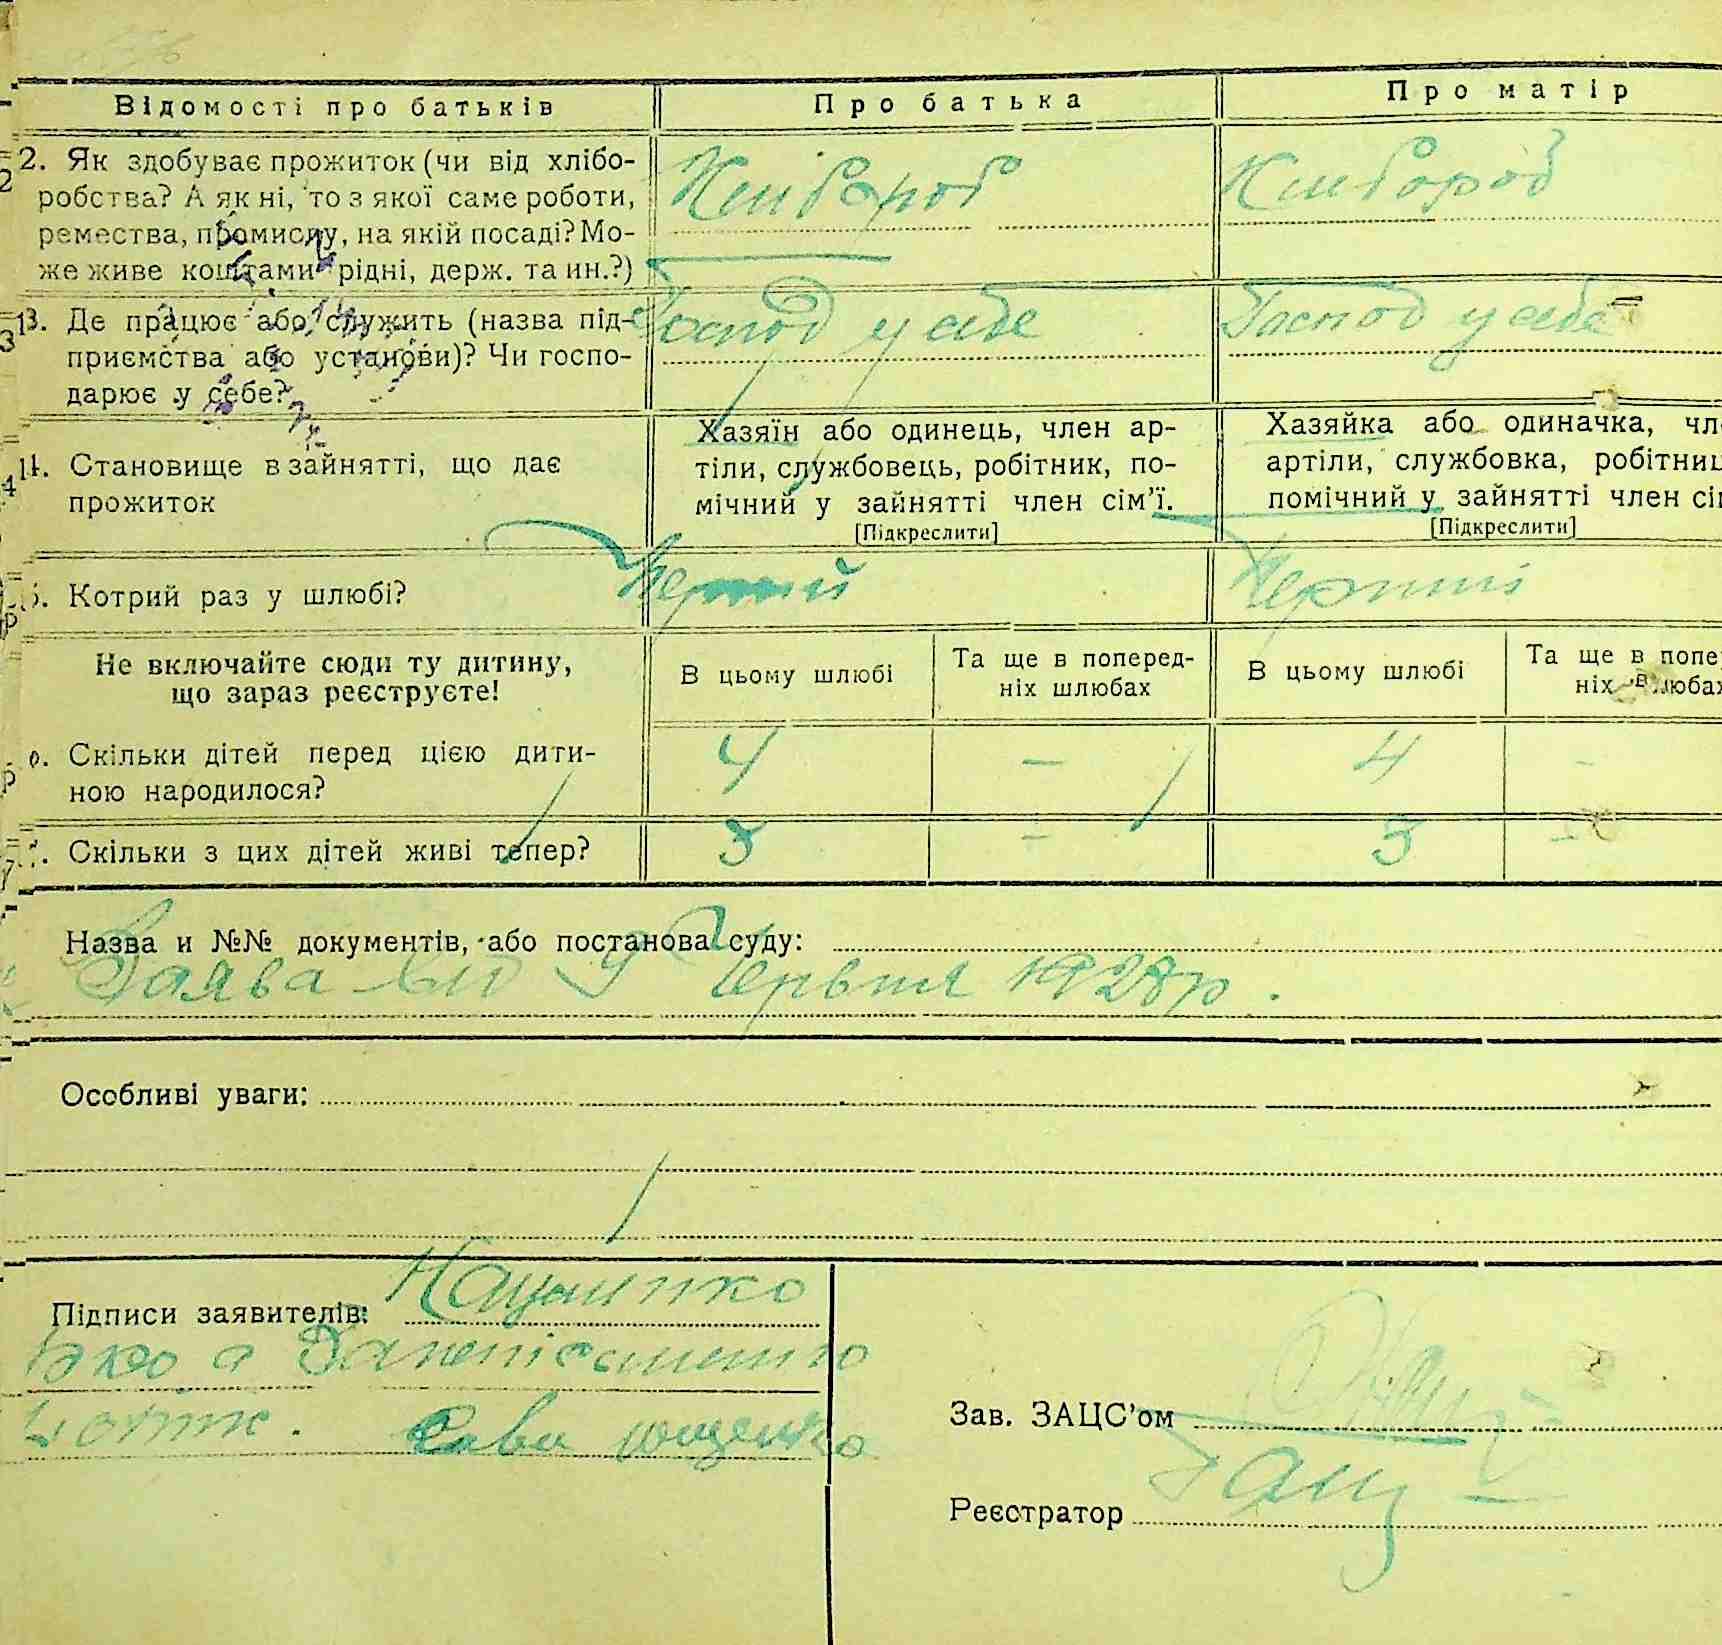 Відомості про батьків
Про батька
Про матір
2. Як здобуває прожиток (чи від хлібо-
робства? А як ні, то з якої саме роботи,
ремества, промислу, на якій посаді? Мо-
же живе коштами рідні, держ. та ин.?)
Хлібороб
Хлібороб
13. Де працює або служить (назва під-
приємства або установи)? Чи госпо-
дарює у себе?
Господ у себе
Господ у себе
14. Становище в зайнятті, що дає
прожиток
Хазяїн або одинець, член ар-
тіли, службовець, робітник, по-
мічний у зайнятті член сім’ї.
[Підкреслити]
Хазяйка або одиначка, чл
артіли, службовка, робітниц
помічний у зайнятті член сі
[Підкреслити]
Котрий раз у шлюбі?
Перший
Перший
Не включайте сюди ту дитину,
що зараз реєструєте!
В цьому шлюбі
Та ще в поперед-
ніх шлюбах
В цьому шлюбі
Та ще в попе
ніх шлюбах
Скільки дітей перед цією дити-
ною народилося?
4 – 4 –
Скільки з цих дітей живі тепер?
3 – 3 –
Назва и №№ документів, або постанова суду:
Заява від 9 Червня 1928 р.
Особливі уваги:
Підписи заявителів:
Сава Ющенко
Зав. ЗАЦС’ом
Реєстратор